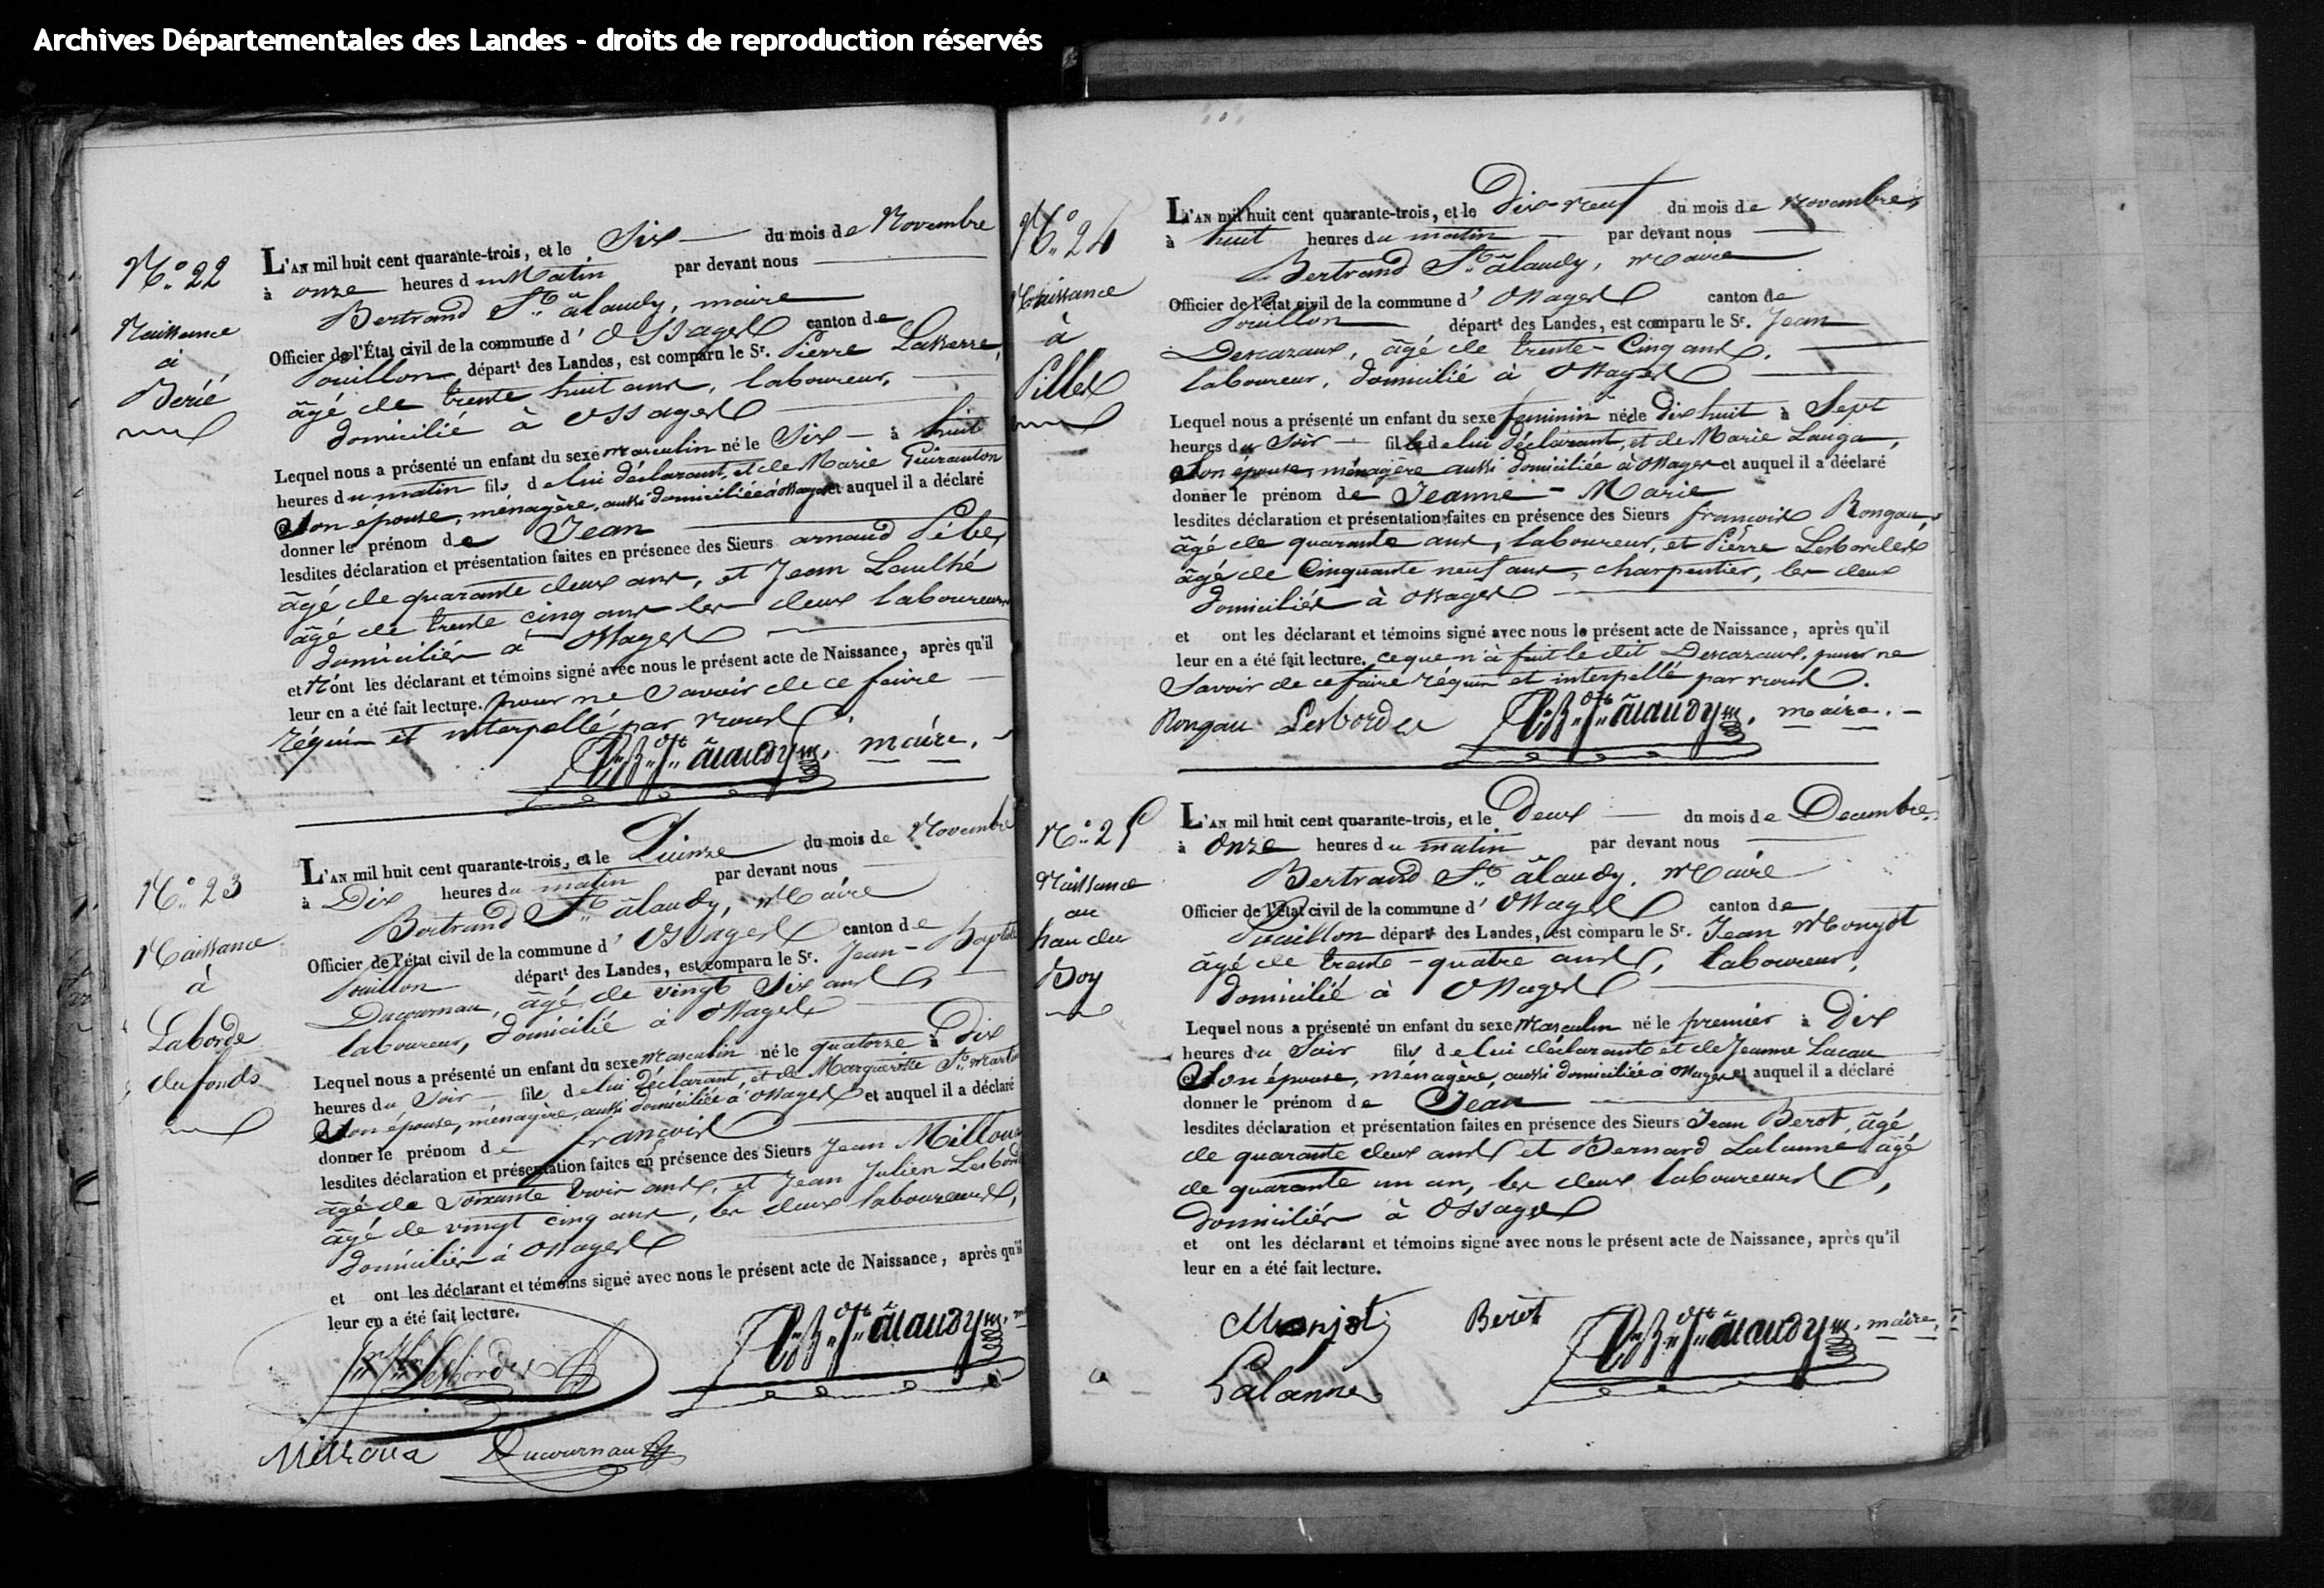 Archives Départementales des Landes - droits de reproduction réservés
N°. 22
Naissance
à
Berié
L'AN mil huit cent quarante-trois, et le Six du mois de Novembre
à onze heures du Matin par devant nous
Bertrand St. âlaudy, maire
Officier de l'État civil de la commune d' Ossages canton de
Pouillon départt des Landes, est comparu le Sr. Pierre Lasserre,
âgé de trente huit ans, laboureur,
domicilié à Ossages
Lequel nous a présenté un enfant du sexe masculin né le Six à huit
heures du matin fils de lui déclarant, et de Marie
Son épouse, ménagère, aussi domiciliée à Ossages et auquel il a déclaré
donner le prénom de Jean
lesdites déclaration et présentation faites en présence des Sieurs arnaud
âgé de quarante deux ans, et Jean Laulhé
âgé de trente cinq ans les deux laboureurs
domiciliés à Ossages
et N'ont les déclarant et témoins signé avec nous le présent acte de Naissance, après qu'il
leur en a été fait lecture. pour ne Savoir de ce faire
réquis et interpellé par nous.
B. St. âlaudy, maire.
N°. 23
Naissance
à
Laborde
du fonds
L'AN mil huit cent quarante-trois, et le Quinze du mois de Novembre
à Dix heures du matin par devant nous
Bertrand St. âlaudy, Maire
Officier de l'état civil de la commune d' Ossages canton de
Pouillon départt des Landes, est comparu le Sr. Jean-Baptiste
Ducournau, âgé de vingt Six ans
laboureur, domicilié à Ossages
Lequel nous a présenté un enfant du sexe Masculin né le quatorze à Dix
heures du Soir fils de lui déclarant, et de Margueritte St. Martin
Son épouse, ménagère, aussi domiciliée à Ossages et auquel il a déclaré
donner le prénom de françois
lesdites déclaration et présentation faites en présence des Sieurs Jean Milloua
âgé de Soixante trois ans, et Jean Julien Lesbord
âgé de vingt cinq ans, les deux laboureurs,
domiciliés à Ossages
et ont les déclarant et témoins signé avec nous le présent acte de Naissance, après qu'il
leur en a été fait lecture.
Lesbordes B. St. âlaudy, m
Milloua Ducournau
N°. 24
Naissance
à
Pilles
L'AN mil huit cent quarante-trois, et le Dix-neuf du mois de novembre,
à huit heures du matin par devant nous
Bertrand St. âlaudy, Maire
Officier de l'état civil de la commune d' Ossages canton de
Pouillon départt des Landes, est comparu le Sr. Jean
Descazaux, âgé de trente-Cinq ans,
laboureur, domicilié à Ossages
Lequel nous a présenté un enfant du sexe feminin née le Dix huit à Sept
heures du Soir fille de lui déclarant, et de Marie Lauga,
Son épouse, ménagère aussi domiciliée à Ossages et auquel il a déclaré
donner le prénom de Jeanne-Marie
lesdites déclaration et présentation faites en présence des Sieurs françois Rongau,
âgé de quarante ans, laboureur, et Pierre Lesbordes
âgé de Cinquante neuf ans, charpentier, les deux
domiciliés à Ossages
et ont les déclarant et témoins signé avec nous le présent acte de Naissance, après qu'il
leur en a été fait lecture, ce que n'à fait le dit Descazaux, pour ne
Savoir de ce faire réquis et interpellé par nous.
Rongau Lesbordes B. St. âlaudy, maire.
N°. 25
Naissance
au
haudu
Boy
L'AN mil huit cent quarante-trois, et le Deux du mois de Decembre,
à Onze heures du matin par devant nous
Bertrand St. âlaudy, Maire
Officier de l'état civil de la commune d' Ossages canton de
Pouillon départt des Landes, est comparu le Sr. Jean Monjot
âgé de trente-quatre ans, laboureur,
domicilié à Ossages
Lequel nous a présenté un enfant du sexe Masculin né le premier à Dix
heures du Soir fils de lui déclarant et de Jeanne Lacau
Son épouse, ménagère, aussi domiciliée à Ossages et auquel il a déclaré
donner le prénom de Jean
lesdites déclaration et présentation faites en présence des Sieurs Jean Berot, âgé
de quarante deux ans et Bernard Lalanne âgé
de quarante un an, les deux laboureurs,
domiciliés à Ossages
et ont les déclarant et témoins signé avec nous le présent acte de Naissance, après qu'il
leur en a été fait lecture.
Monjot Berot B. St. âlaudy, maire,
Lalanne